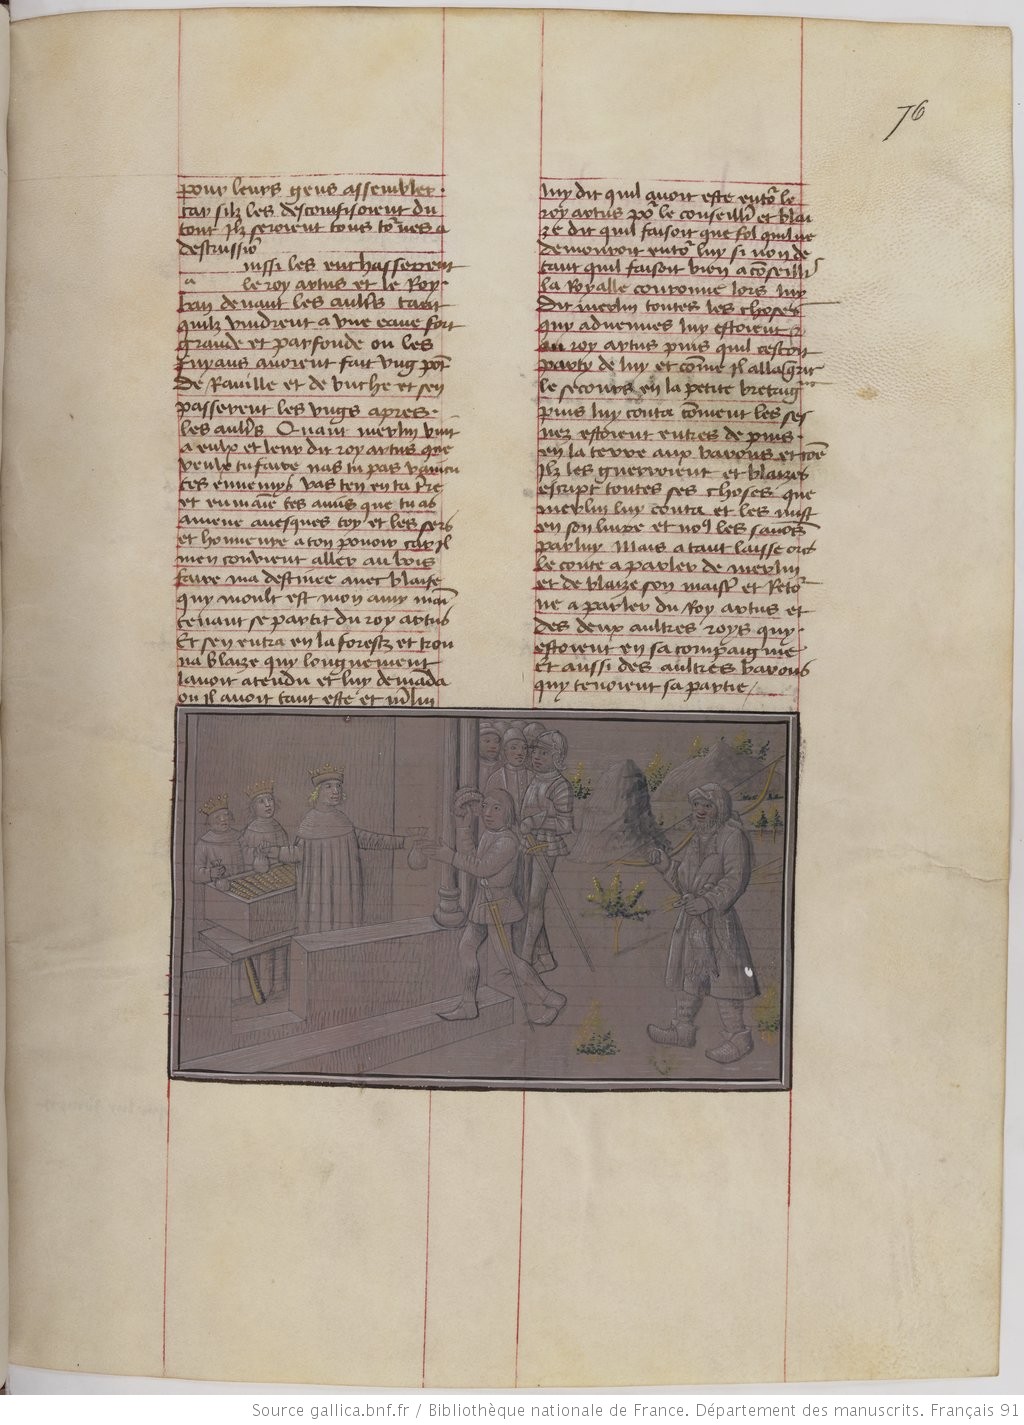 76
pour leurs gens assembler.
car silz les desconfisoient du
tout Ilz seroient tous to͂nes a
destructio͂
a
uissi les enchasserent
le roy artus et le Roy.
ban deuant les ault͂s tant
quilz vindrent a vne eaue fort
grande et parfonde ou les
fuyans auoient fait vng po͂t
De Raville et de buche et sen
passerent les vngs apres.
les ault͂s Quant merlin vint
a eulx et leur dit roy artus que
veulx tu faire nas tu pas vaincu
tes ennemys vas ten en ta t͂re
et en maine tes amis que tu as
amene auesques toy et les sers
et honneure a ton pouoir car Il
men conuient aller au bois
faire ma destinee auec blaise
quy moult est mon amy mai͂
tenant se partit du roy artus
Et sen entra en la forestz et trou
ua blaize quy longuement
lauoit atendu et luy dema͂da
ou Il auoit tant este et m͂lin
luy dit quil auoit este ento͂ le
roy artus po͂ le conseill͂ et blai
ze dit quil faisoit que fol quil ne
demouroit ento͂ luy si non de
tant quil faisoit bien a co͂seill͂
la Royalle couronne lors luy
dit merlin toutes les choses
quy aduenues luy estoient &
au roy artus puis quil cestoit
party de luy et co͂me Il alla q͂rir
le secours en la petite bretaig͂
puis luy conta co͂ment les ses
nez estoient entres de puis.
en la terre aux barons et co͂e
Ilz les guerroient et blaizes
escript toutes ses choses que
merlin luy conta et les mist
en son liure et no9 les sauo͂s
par luy Mais a tant laisse ores
le conte a parler de merlin
et de blaize son maist͂ et Reto͂
ne a parler du Roy artus et
des deux aultres roys quy.
estoient en sa compaignie
Et aussi des aultres barons
quy tenoient sa partie /
Source gallica.bnf.fr / Bibliothèque nationale de France. Département des manuscrits. Français 91